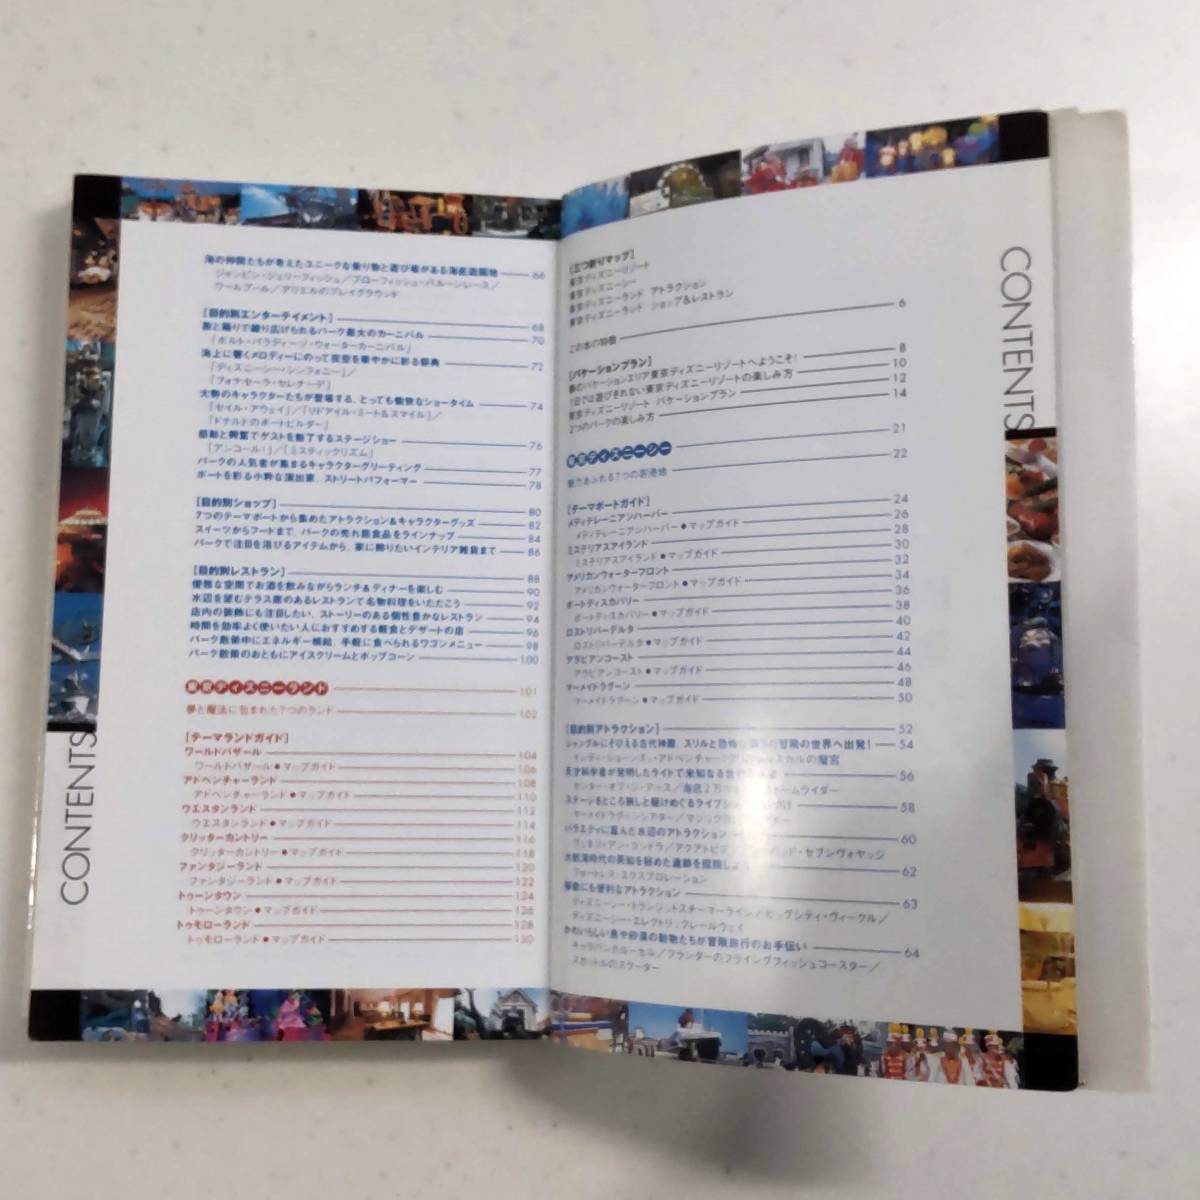 CONTENTS
[三つ折りマップ]
東京ディズニーリゾート
東京ディズニーシー
東京ディズニーランド アトラクション
東京ディズニーランド ショップ&レストラン
この本の特徴 6
[バケーションプラン]
夢のバケーションエリア東京ディズニーリゾートへようこそ! 8
1日では遊びきれない東京ディズニーリゾートの楽しみ方 10
東京ディズニーリゾート バケーションプラン 12
2つのパークの楽しみ方 14
東京ディズニーシー 21
魅力あふれる7つの寄港地 22
[テーマポートガイド]
メディテレーニアンハーバー 24
メディテレーニアンハーバー●マップガイド 26
ミステリアスアイランド 28
ミステリアスアイランド●マップガイド 30
アメリカンウォーターフロント 32
アメリカンウォーターフロント●マップガイド 34
ポートディスカバリー 36
ポートディスカバリー●マップガイド 38
ロストリバーデルタ 40
ロストリバーデルタ●マップガイド 42
アラビアンコースト 44
アラビアンコースト●マップガイド 46
マーメイドラグーン 48
マーメイドラグーン●マップガイド 50
[目的別アトラクション] 52
ジャングルにそびえる古代神殿、スリルと恐怖 冒険の世界へ出発! 54
インディ・ジョーンズ・アドベンチャー: スカルの魔宮
天才科学者が発明したライドで未知なる世 56
センター・オブ・ジ・アース/海底2万 トームライダー
ステージをところ狭しと駆けめぐるライブショ 58
マーメイドラグーンシアター/マジック
バラエティに富んだ水辺のアトラクション 60
ヴェネツィアン・ゴンドラ/アクアトピア ド・セブンヴォヤッジ
大航海時代の英知を秘めた遺跡を探険しよ 62
フォートレス・エクスプロレーション
移動にも便利なアトラクション 63
ディズニーシー・トランジットスチーマーライン/ビッグシティ・ヴィークル/
ディズニーシー・エレクトリックレールウェイ
かわいらしい魚や砂漠の動物たちが冒険旅行のお手伝い 64
キャラバンカルーセル/フランダーのフライングフィッシュコースター/
スカットルのスクーター
海の仲間たちが考えたユニークな乗り物と遊び場がある海底遊園地 66
ジャンピン・ジェリーフィッシュ/ブローフィッシュ・バルーンレース/
ワールプール/アリエルのプレイグラウンド
[目的別エンターテイメント] 68
歌と踊りで繰り広げられるパーク最大のカーニバル 70
「ポルト・パラディーゾ・ウォーターカーニバル」
海上に響くメロディーにのって夜空を華やかに彩る祭典 72
「ディズニーシー・シンフォニー」/
「フォナセーラ・セレナーデ」
大勢のキャラクターたちが登場する、とっても愉快なショータイム 74
「セイル・アウェイ」/「リドアイル・ミート&スマイル」/
「ドナルドのボートビルダー」
感動と興奮でゲストを魅了するステージショー 76
「アンコール!」/「ミスティックリズム」
パークの人気者が集まるキャラクターグリーティング 77
ポートを彩る小粋な演出家、ストリートパフォーマー 78
[目的別ショップ] 80
7つのテーマポートから集めたアトラクション&キャラクターグッズ 82
スイーツからフードまで、パークの売れ筋食品をラインナップ 84
パークで注目を浴びるアイテムから、家に飾りたいインテリア雑貨まで 86
[目的別レストラン] 88
優雅な空間でお酒を飲みながらランチ&ディナーを楽しむ 90
水辺を望むテラス席のあるレストランで名物料理をいただこう 92
店内の装飾にも注目したい、ストーリーのある個性豊かなレストラン 94
時間を効率よく使いたい人におすすめする軽食とデザートの店 96
パーク散策中にエネルギー補給、手軽に食べられるワゴンメニュー 98
パーク散策のおともにアイスクリームとポップコーン 100
東京ディズニーランド 101
夢と魔法に包まれた7つのランド 102
[テーマランドガイド]
ワールドバザール 104
ワールドバザール●マップガイド 106
アドベンチャーランド 108
アドベンチャーランド●マップガイド 110
ウエスタンランド 112
ウエスタンランド●マップガイド 114
クリッターカントリー 116
クリッターカントリー●マップガイド 118
ファンタジーランド 120
ファンタジーランド●マップガイド 122
トゥーンタウン 124
トゥーンタウン●マップガイド 126
トゥモローランド 128
トゥモローランド●マップガイド 130
CONTENTS